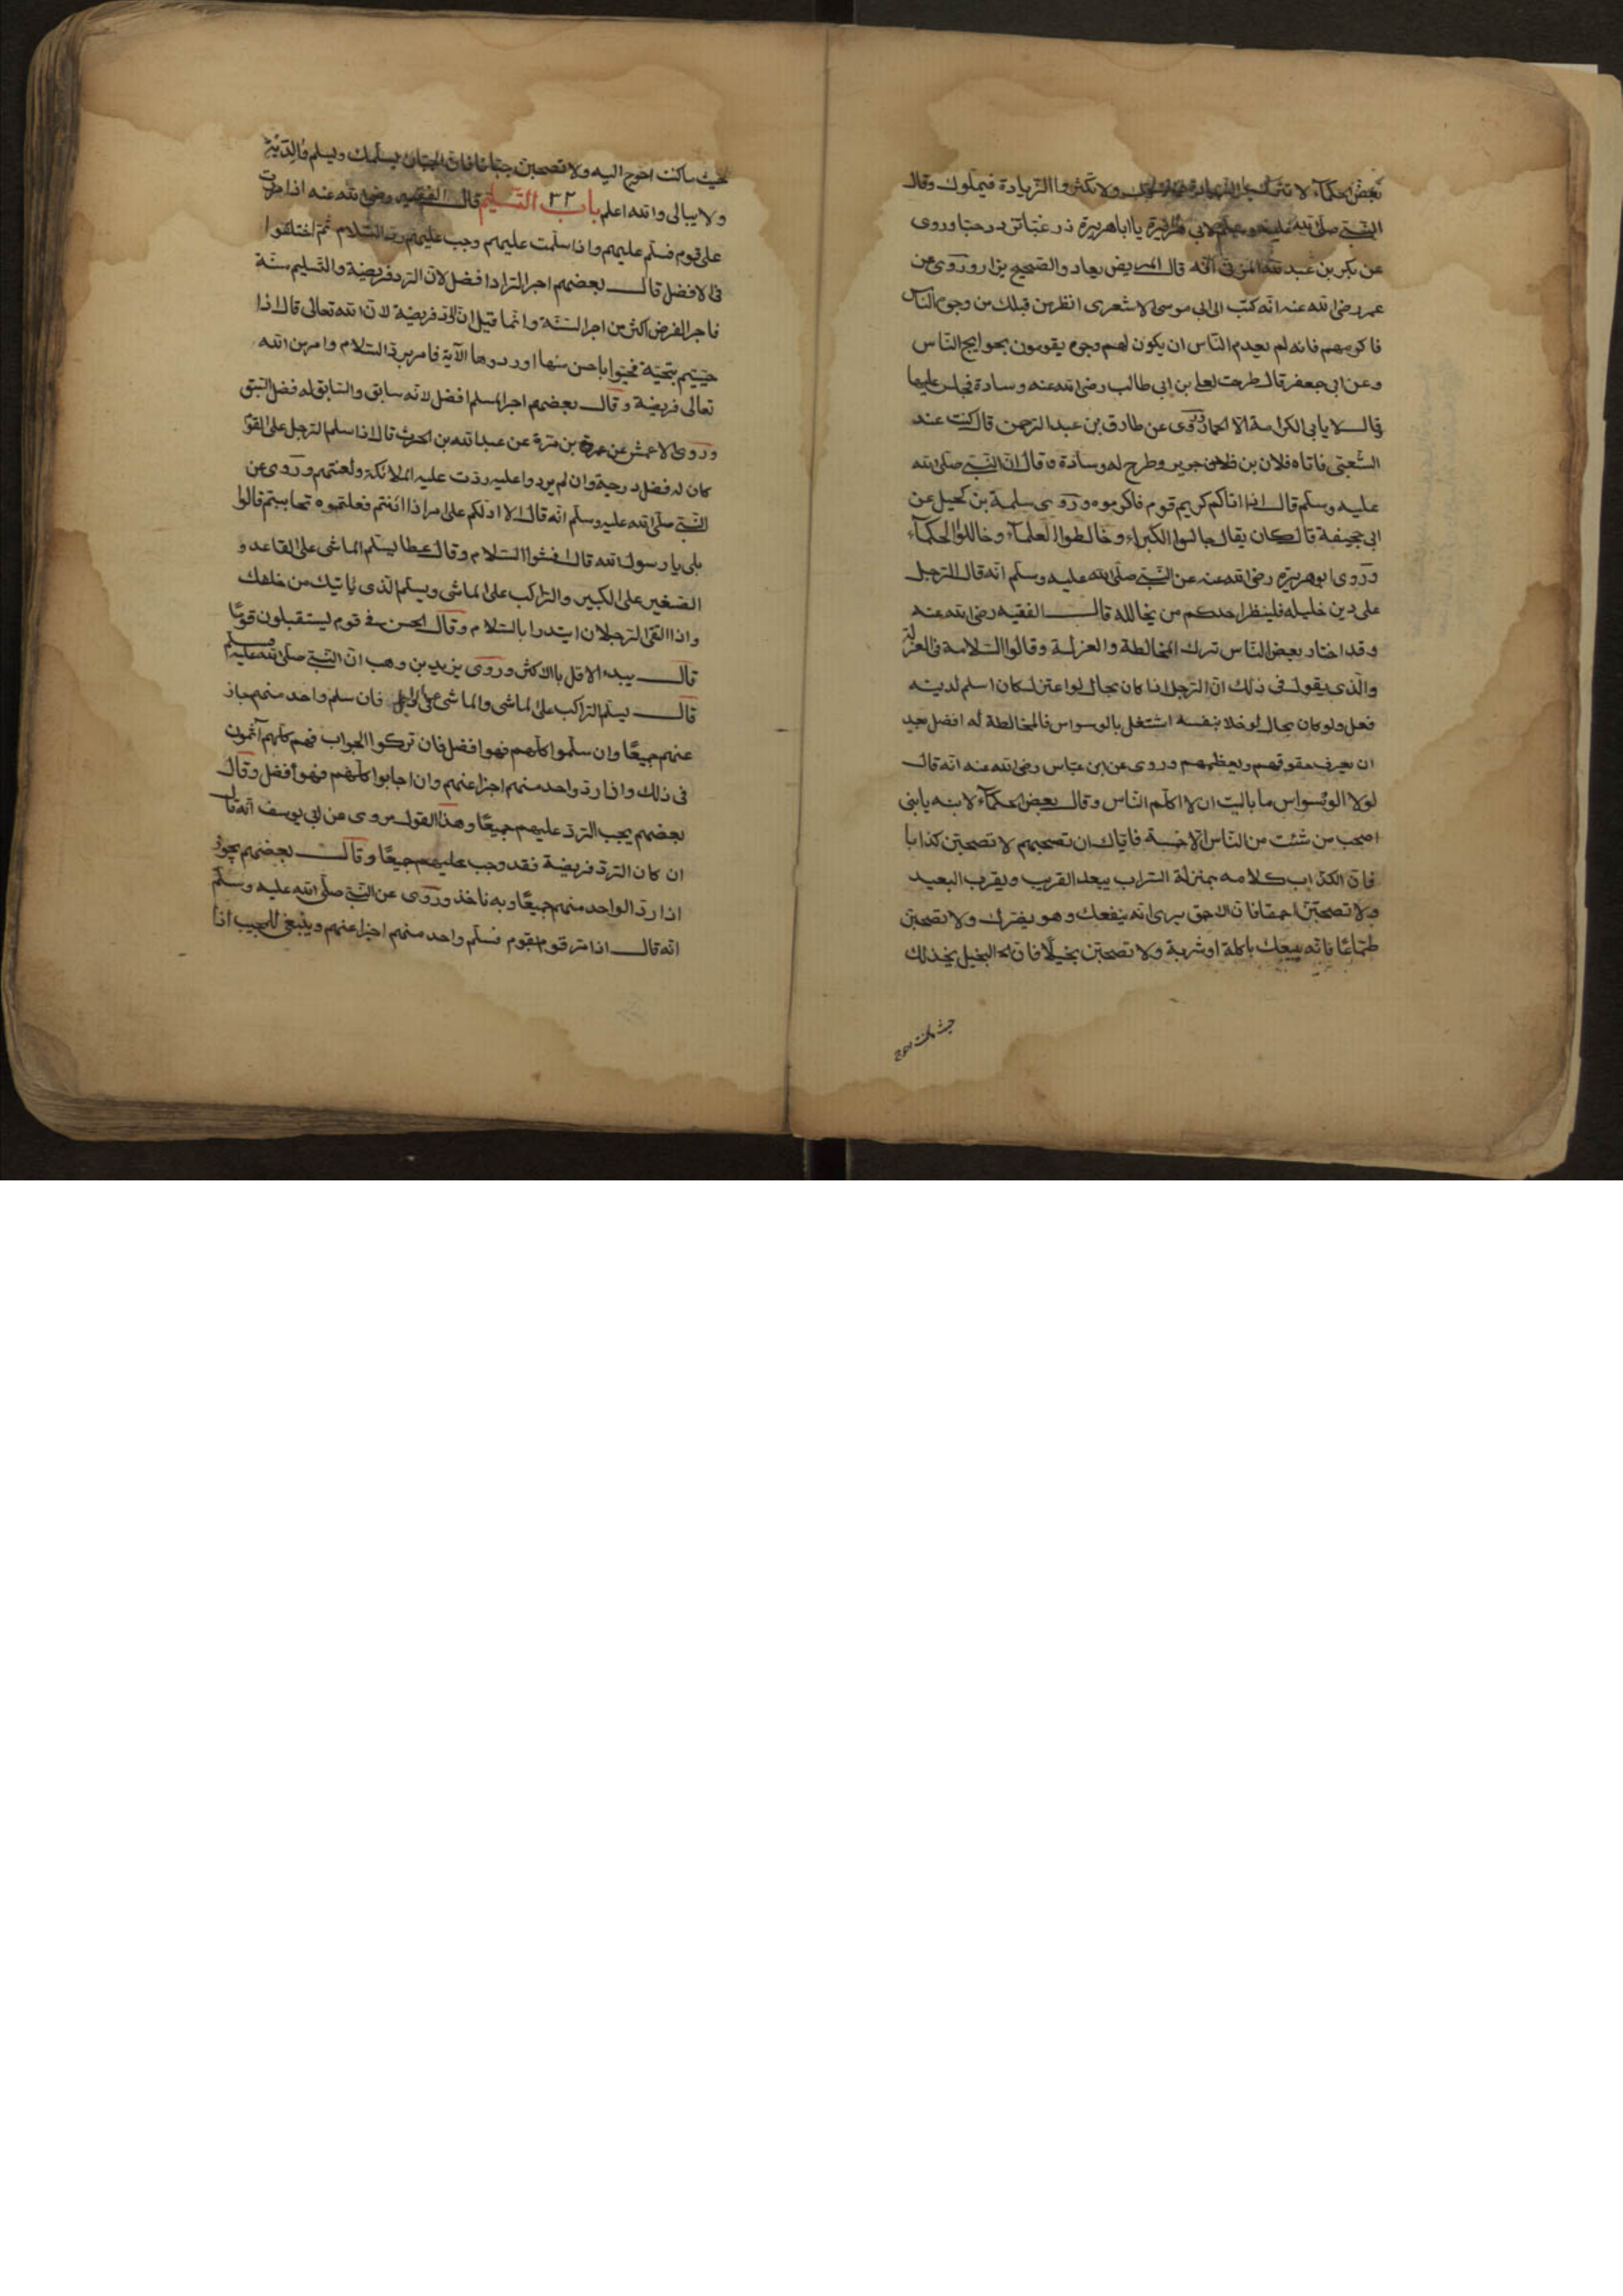 بعض الحكمآء لا تترك الزيادة ولا تكثروا الزيادة فيملوك وقال
النبي صلى الله عليه وسلم لابي هريرة يا ابا هريرة زر غبا تزدد حبا وروى
عن بكر بن عبد الله المزنى انه قال المريض يعاد والصحيح يزار وروى عن
عمر رضى الله عنه انه كتب الى ابى موسى الاشعرى انظر من قبلك من وجوه الناس
فاكرمهم فانه لم يعدم الناس ان يكون لهم وجوه يقومون بحوايج الناس
وعن ابى جعفر قال طرحت لعلى بن ابى طالب رضى الله عنه وسادة فجلس عليها
وقال لا يابى الكرامة الا الحمار وروى عن طارق بن عبد الرحمن قال كنت عند
الشعبى فاتاه فلان بن فلان جرير وطرح له وسادة وقال ان النبي صلى الله
عليه وسلم قال اذا اتاكم كريم قوم فاكرموه وروى سلمة بن كحيل عن
ابى جحيفة قال كان يقال جالسوا الكبراء وخالطوا العلمآء وخاللوا الحكمآء
وروى ابو هريرة رضى الله عنه عن النبي صلى الله عليه وسلم انه قال الرجل
على دين خليله فلينظر احدكم من يخالله قال الفقيه رضى الله عنه
وقد اختار بعض الناس ترك المخالطة والعزلة وقالوا السلامة فى العزلة
والذى يقول فى ذلك ان الرجل اذا كان بحال لو اعتزل كان اسلم لدينه
فعل ولو كان بحال لو خلا بنفسه اشتغل بالوسواس فالمخالطة له افضل بعد
ان يعرف حقوقهم ويعظمهم وروى عن ابن عباس رضى الله عنه انه قال
لولا الوسواس ما باليت ان لا اكلم الناس وقال بعض الحكمآء لابنه يا بنى
اصحب من شئت من الناس الا خمسة فاياك ان تصحبهم لا تصحبن كذابا
فان الكذاب كلامه بمنزلة السراب يبعد القريب ويقرب البعيد
ولا تصحبن احمقا فان الاحمق يرى انه ينفعك وهو يضرك ولا تصحبن
طماعا فانه يبيعك باكلة او شربة ولا تصحبن بخيلا فان البخيل يخذلك
حيث ما كنت احوج
حيث ما كنت احوج اليه ولا تصحبن جبانا فان الجبان يسلمك ويسلم والديه
ولا يبالى والله اعلم باب ٣٢ التسليم قال الفقيه رضى الله عنه اذا مررت
على قوم فسلم عليهم واذا سلمت عليهم وجب عليهم رد السلام ثم اختلفوا
فى الافضل قال بعضهم اجر الراد افضل لان الرد فريضة والتسليم سنة
فاجر الفرض اكثر من اجر السنة وانما قيل ان الرد فريضة لان الله تعالى قال اذا
حييتم بتحية فحيوا باحسن منها او ردوها الآية فامر برد السلام وامر من الله
تعالى فريضة وقال بعضهم اجر المسلم افضل لانه سابق والسابق له فضل السبق
وروى الاعمش عن عمرو بن مرة عن عبد الله بن الحرث قال اذا سلم الرجل على القوم
كان له فضل درجة وان لم يردوا عليه ردت عليه الملائكة ولعنتهم وروى عن
النبي صلى الله عليه وسلم انه قال الا ادلكم على امر اذا انتم فعلتموه تحاببتم قالوا
بلى يا رسول الله قال افشوا السلام وقال عطا يسلم الماشى على القاعد و
الصغير على الكبير والراكب على الماشى ويسلم الذى ياتيك من خلفك
واذا التقى الرجلان ابتدرا بالسلام وقال الحسن فى قوم يستقبلون قوما
قال يبدء الاقل بالاكثر وروى يزيد بن وهب ان النبي صلى الله عليه وسلم
قال يسلم الراكب على الماشى والماشى على فان سلم واحد منهم جاز
عنهم جميعا وان سلموا كلهم فهو افضل فان تركوا الجواب فهم كلهم آثمون
فى ذلك واذا رد واحد منهم اجزا عنهم وان اجابوا كلهم فهو افضل وقال
بعضهم يجب الرد عليهم جميعا وهذا القول مروى عن ابى يوسف انه قال
ان كان الرد فريضة فقد وجب عليهم جميعا وقال بعضهم يجوز
اذا رد الواحد منهم جميعا وبه ناخذ وروى عن النبي صلى الله عليه وسلم
انه قال اذا مر قوم بقوم فسلم واحد منهم اجزا عنهم وينبغى للمجيب اذا